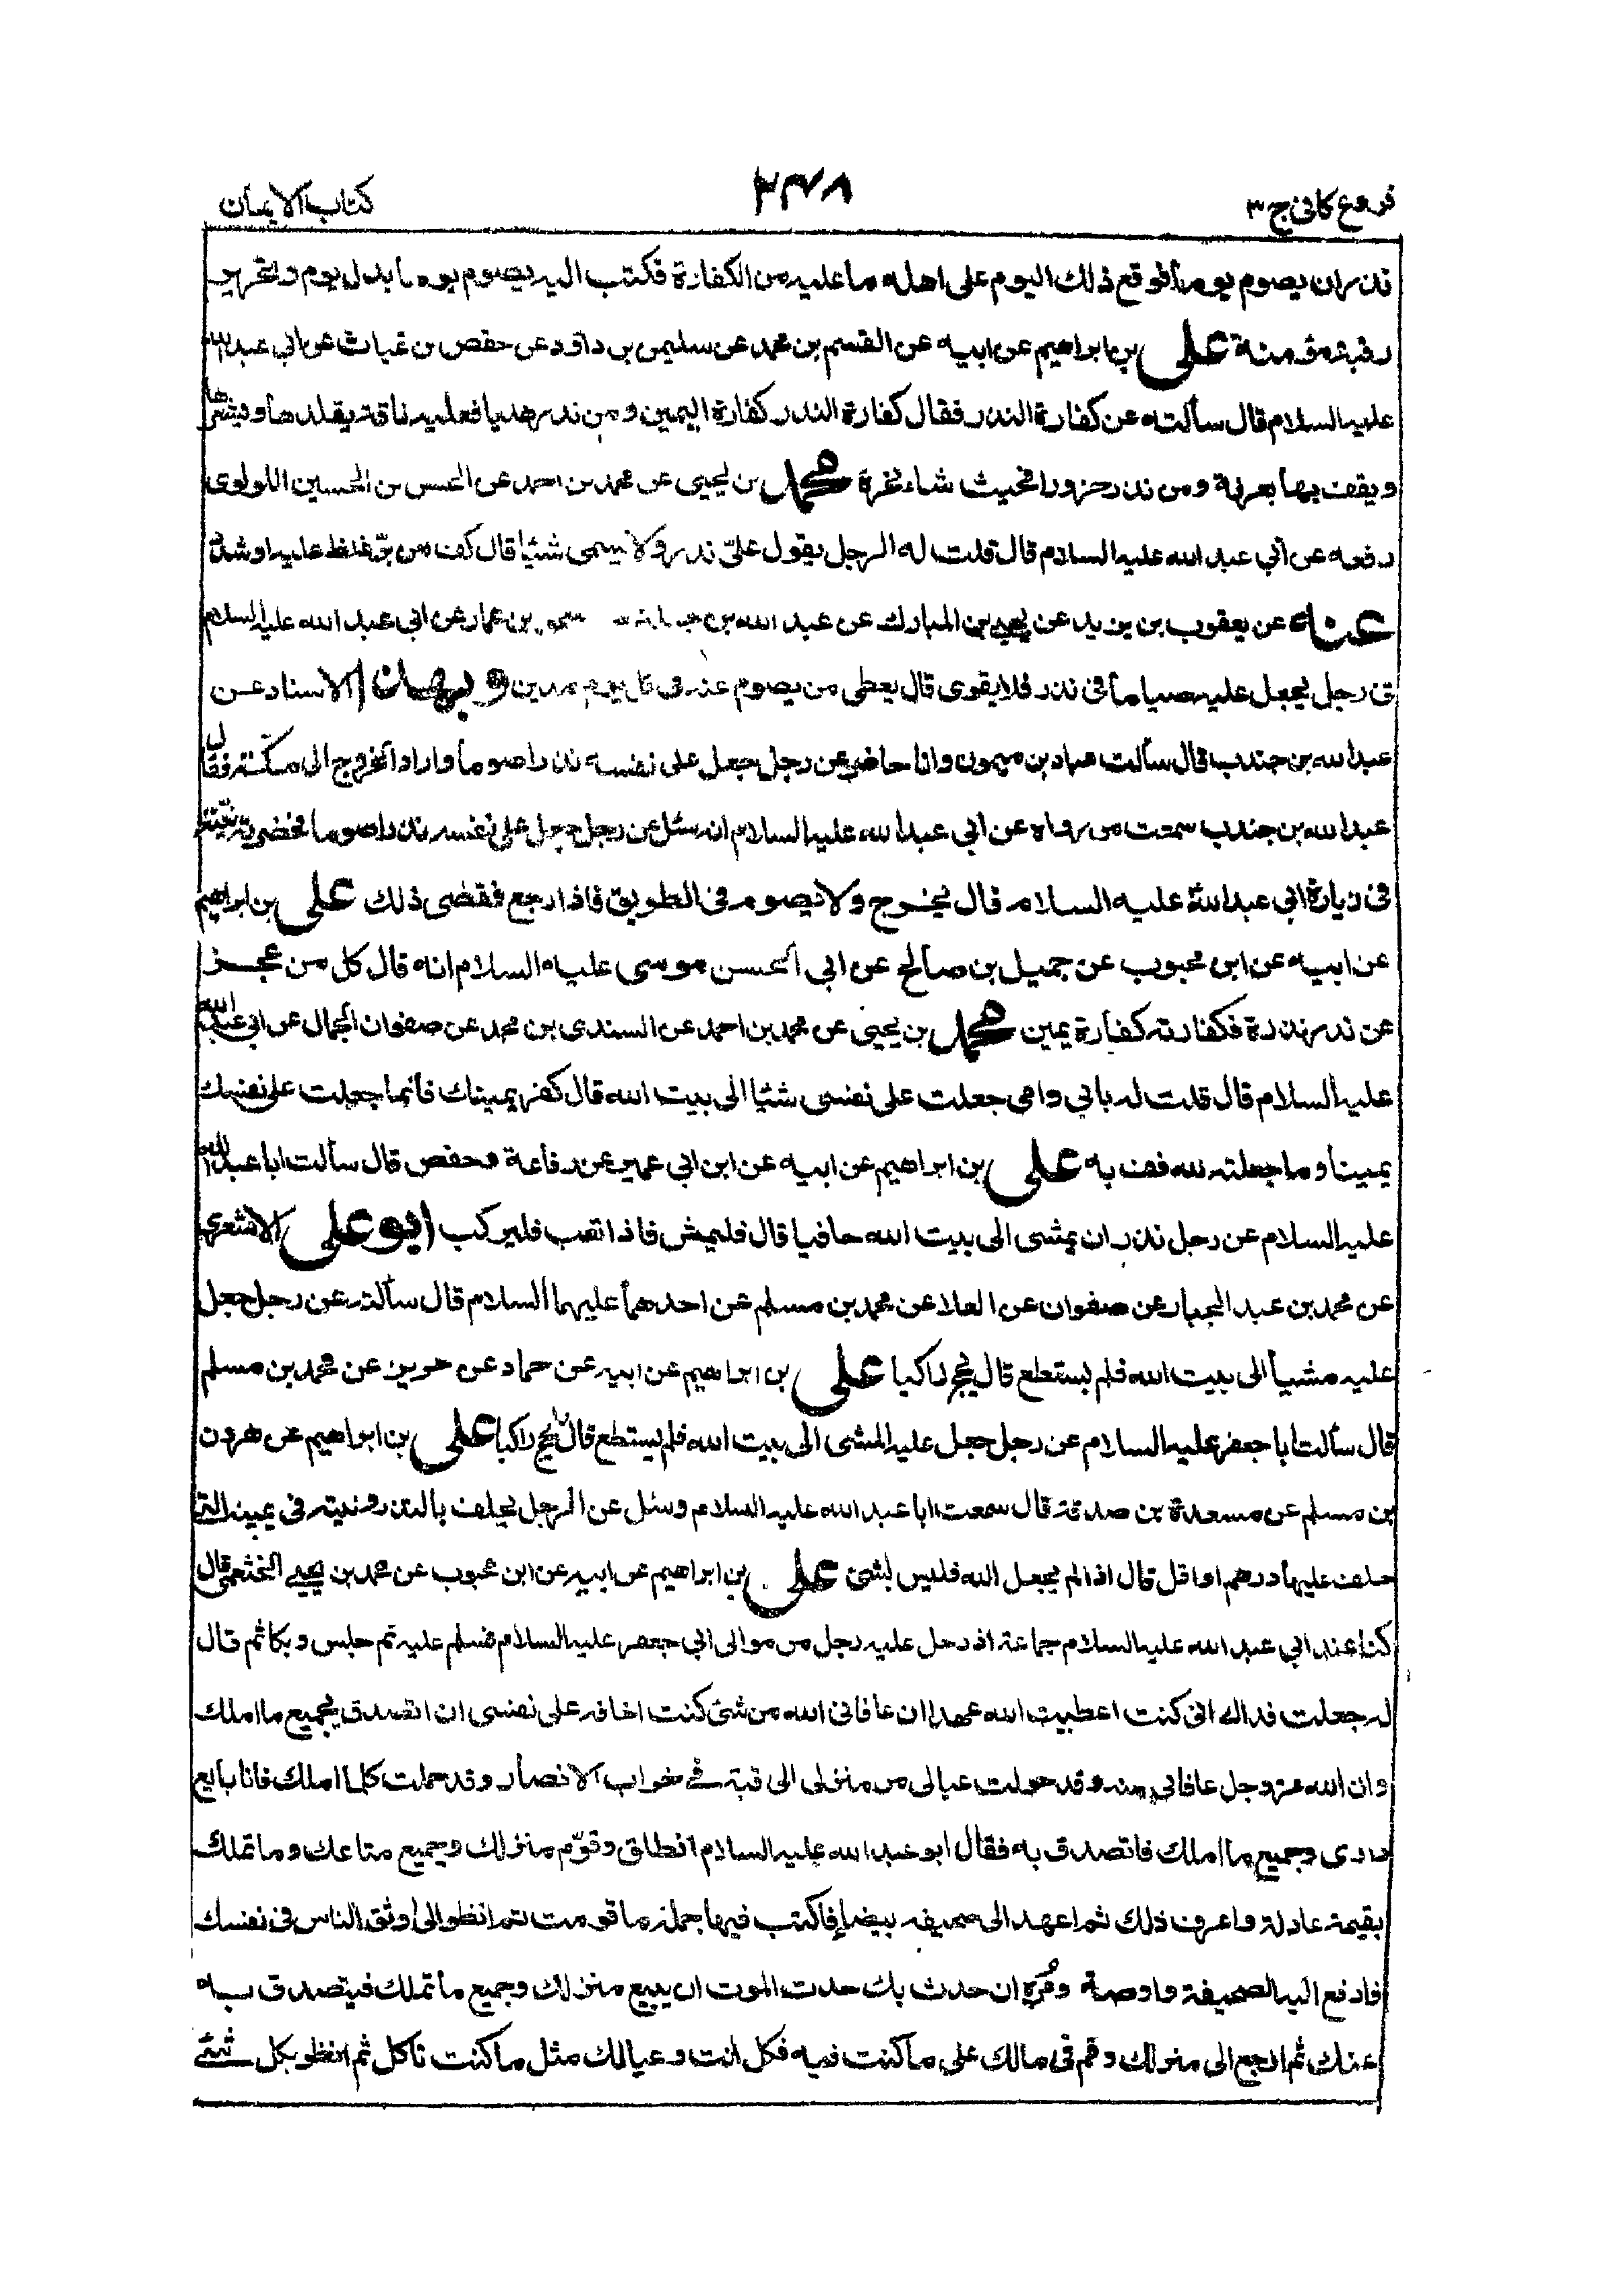 فروع كافى ج ٣
٢٣٧٨
كتاب الايمان
نذر ان يصوم يوما فوقع ذلك اليوم على اهله ما عليه من الكفارة فكتب اليه يصوم يوما بدل يوم وتحرير
رقبة مؤمنة على بن ابراهيم عن ابيه عن القسم بن محمد عن سليمن بن داود عن حفص بن غياث عن ابى عبد الله
عليه السلام قال سألته عن كفارة النذر فقال كفارة النذر كفارة اليمين ومن نذر هديا فعليه ناقة يقلدها ويشعرها
ويقف بها بعرفة ومن نذر جزورا فحيث شاء نحره محمد بن يحيى عن محمد بن احمد عن الحسن بن الحسين اللولوى
رفعه عن أبي عبد الله عليه السلام قال قلت له الرجل يقول علىّ نذر ولا يسمى شيئا قال كف من برّ غلظ عليه او شدّد
عنه عن يعقوب بن يزيد عن يحيى بن المبارك عن عبد الله بن جبلة بن عمار عن ابى عبد الله عليه السلام
فى رجل يجعل عليه صياما فى نذر فلا يقوى قال يعطى من يصوم عنه فى كل يوم مدين وبهذا الاسناد عن
عبد الله بن جندب قال سألت عباد بن ميمون وانا حاضر عن رجل جعل على نفسه نذرا صوما واراد الخروج الى مكّة فقال
عبد الله بن جندب سمعت من رواه عن ابى عبد الله عليه السلام انه سئل عن رجل جعل على نفسه نذرا صوما فحضرته نيّته
فى زيارة ابى عبد الله عليه السلام قال يخرج ولا يصوم فى الطريق فاذا رجع فقضى ذلك على بن ابراهيم
عن ابيه عن ابن محبوب عن جميل بن صالح عن ابى الحسن موسى عليه السلام انه قال كل من عجز
عن نذر نذرة فكفارته كفارة يمين محمد بن يحيى عن محمد بن احمد عن السندى بن محمد عن صفوان الجمال عن ابى عبد الله
عليه السلام قال قلت له بابى وامى جعلت على نفسى شيئا الى بيت الله قال كفر يمينك فأنما جعلت على نفسك
يمينا وما جعلته لله فف به على بن ابراهيم عن ابيه عن ابن ابى عمير عن رفاعة وحفص قال سألت ابا عبد الله
عليه السلام عن رجل نذر ان يمشى الى بيت الله حافيا قال فليمش فاذا تعب فليركب ابو على الاشعرى
عن محمد بن عبد الجبار عن صفوان عن العلا عن محمد بن مسلم عن احدهما عليهما السلام قال سألته عن رجل جعل
عليه مشيا الى بيت الله فلم يستطع قال يحج راكبا على بن ابراهيم عن ابيه عن حماد عن حريز عن محمد بن مسلم
قال سألت ابا جعفر عليه السلام عن رجل جعل عليه المشى الى بيت الله فلم يستطع قال يحج راكبا على بن ابراهيم عن هرون
بن مسلم عن مسعدة بن صدقة قال سمعت ابا عبد الله عليه السلام وسئل عن الرجل يحلف بالنذر ونيته فى يمينه التى
حلف عليها درهم او اقل قال اذا لم يجعل الله فليس بشئ على بن ابراهيم عن ابيه عن ابن محبوب عن محمد بن يحيى الخثعمى قال
كنا عند ابى عبد الله عليه السلام جماعة اذ دخل عليه رجل من موالى ابى جعفر عليه السلام فسلم عليه ثم جلس وبكا ثم قال
له جعلت فداك انى كنت اعطيت الله عهدا ان عافانى الله من شئ كنت اخافه على نفسى ان اتصدق بجميع ما املك
وان الله عز وجل عافانى منه وقد حولت عيالى من منزلى الى قبة فى خراب الانصار وقد حملت كلما املك فانا بايع
دارى وجميع ما املك فاتصدق به فقال ابو عبد الله عليه السلام انطلق وقوّم منزلك وجميع متاعك وما تملك
بقيمة عادلة واعرف ذلك ثم اعهد الى صحيفه بيضا فاكتب فيها جملة ما قومت ثم انظر الى اوثق الناس فى نفسك
فادفع اليه الصحيفة واوصه ومُره ان حدث بك حدث الموت ان يبيع منزلك وجميع ما تملك فيتصدق به
عنك ثم ارجع الى منزلك وقم فى مالك على ما كنت فيه فكل انت وعيالك مثل ما كنت تأكل ثم انظر بكل شئ